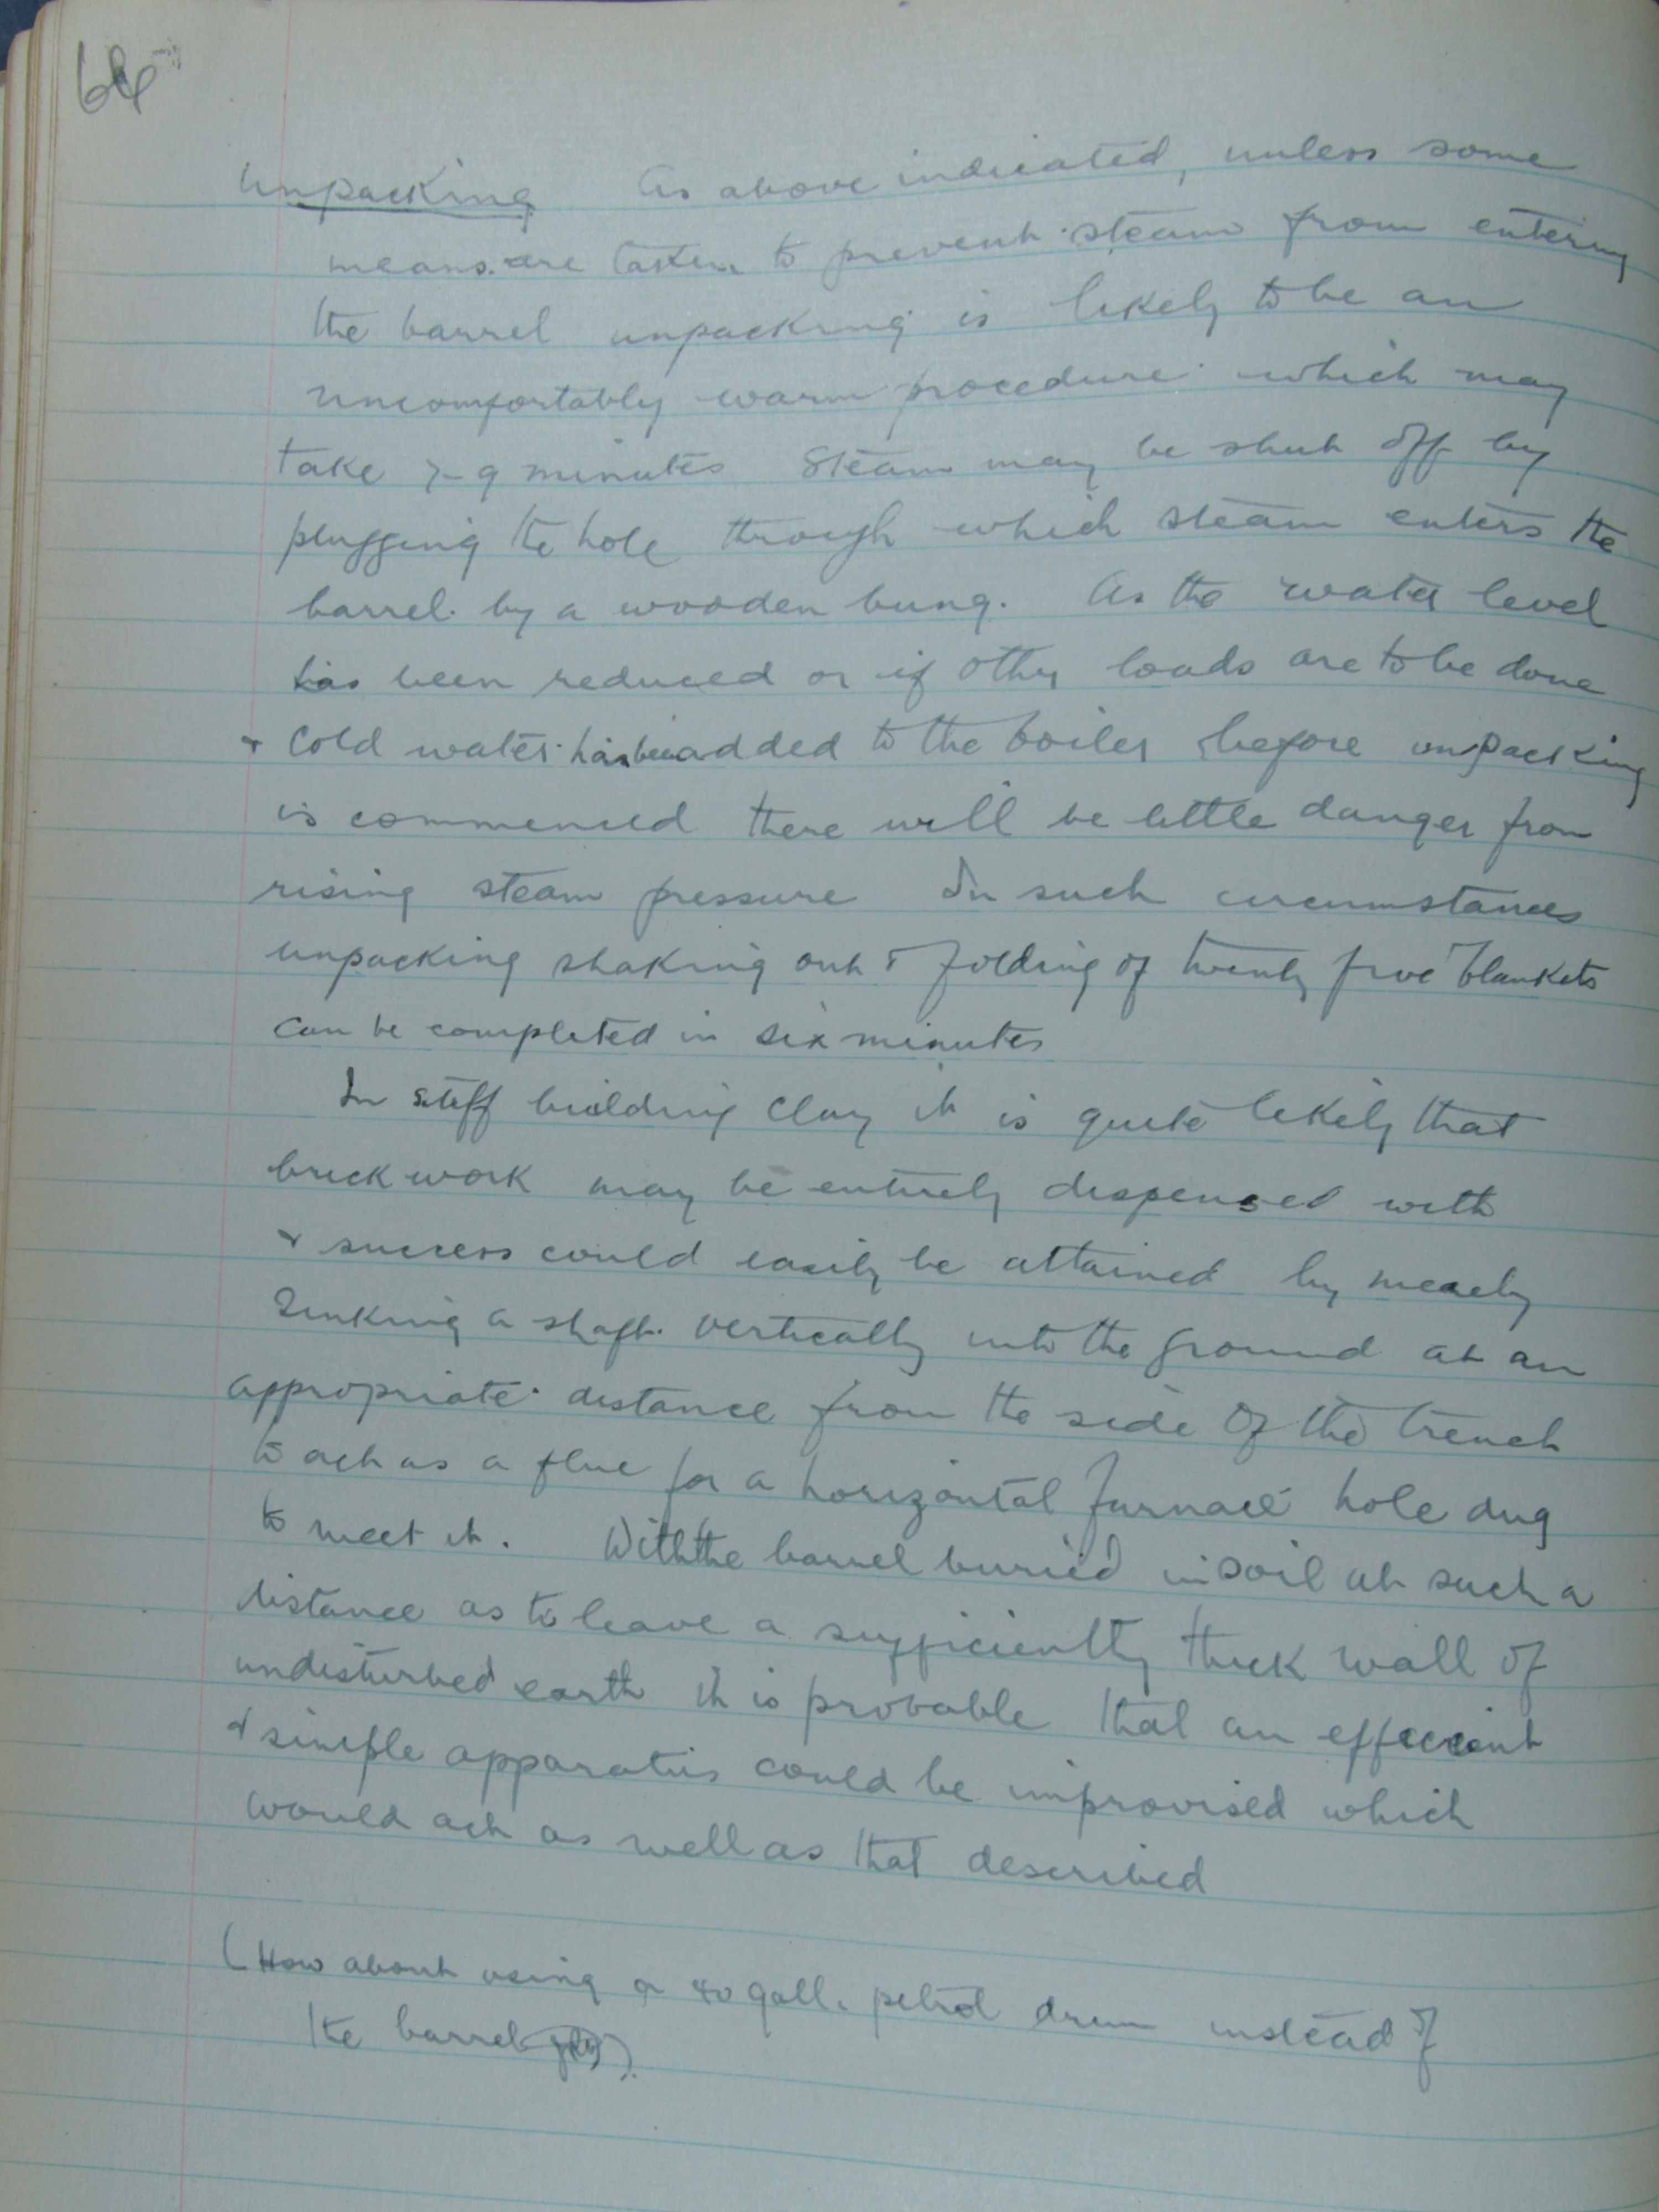 64
Unpacking As above indicated, unless some
means are taken to prevent steam from entering
the barrel unpacking is likely to be an
uncomfortably warm procedure which may
take 7-9 minutes Steam may be shut off by
plugging the hole through which steam enters the
barrel by a wooden bung. As the water level
has been reduced or if other loads are to be done
& cold water has been added to the boiler before unpacking
is commenced there will be little danger from
rising steam pressure In such circumstances
unpacking shaking out & folding of twenty five blankets
can be completed in six minutes
In stiff building clay it is quite likely that
brick work may be entirely dispensed with
& success could easily be attained by merely
sinking a shaft vertically into the ground at an
appropriate distance from the side of the trench
to act as a flue for a horizontal furnace hole dug
to meet it. With the barrel buried in soil at such a
distance as to leave a sufficiently thick wall of
undisturbed earth it is probable that an efficient
& simple apparatus could be improvised which
would act as well as that described
(How about using a 40 gall. petrol drum instead of
the barrel)